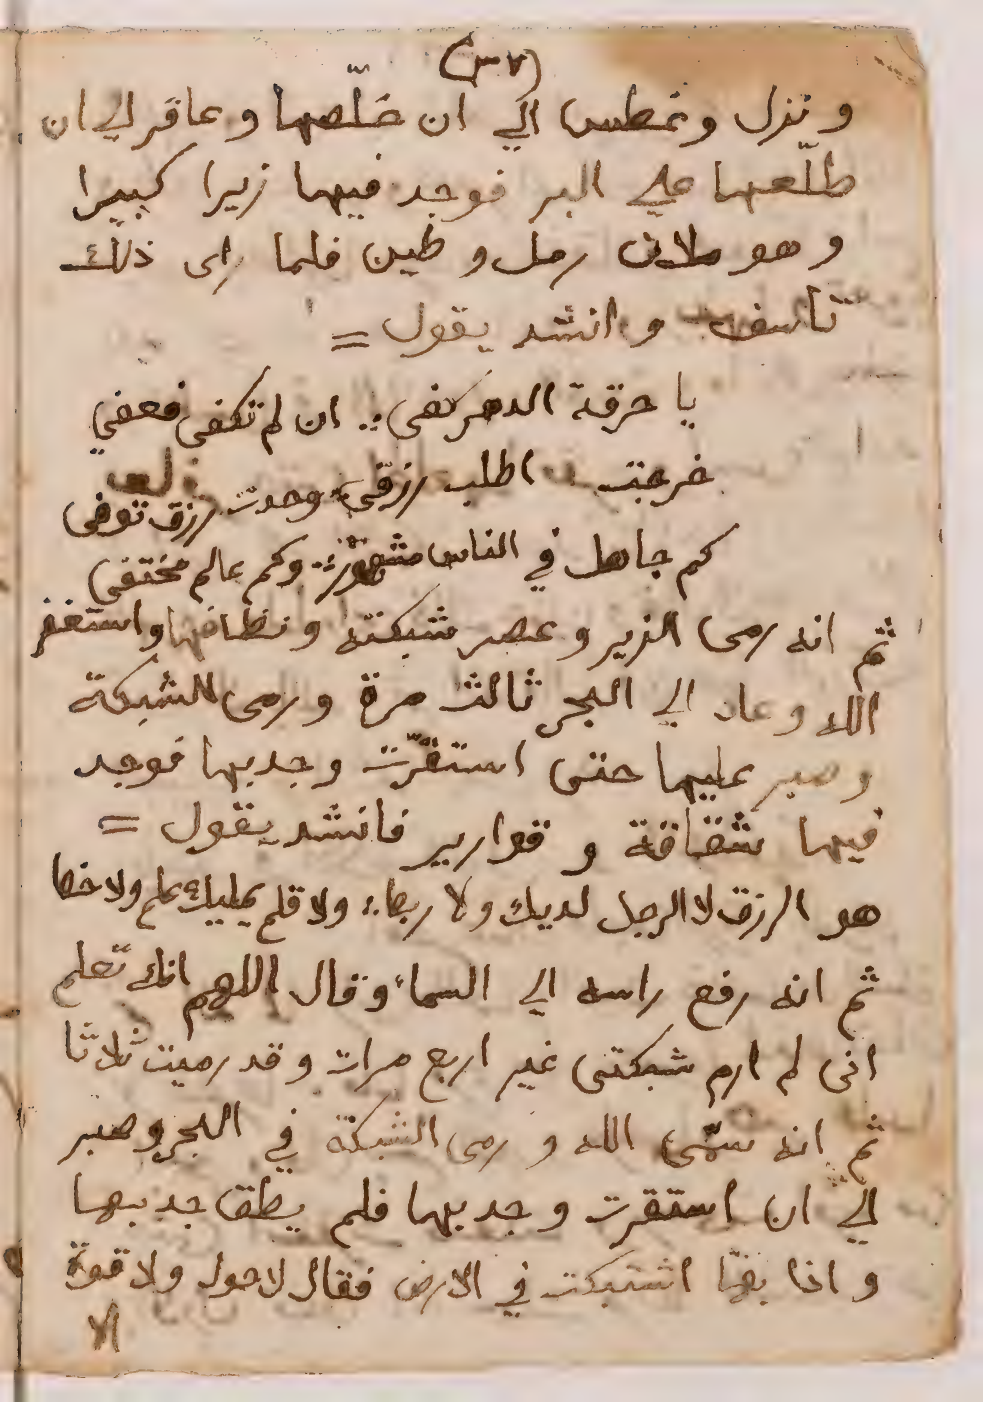 (٣٧)
ونزل وغطس الي ان خلّصها وعافر الي ان
طلّعها علي البر فوجد فيها زيرا كبيرا
وهو ملان رمل وطين فلما راى ذلك
تاسف وانشد يقول =
يا حرقة الدهر كفى ∴ ان لم تكفى فعفي
خرجت اطلب رزقي وجدت رزقى توفى
كم جاهل في الناس مشهور ∴ وكم عالم مختفى
ثم انه رمى الزير وعصر شبكته ونظفها واستغفر
الله وعاد الي البحر ثالث مرة ورمى الشبكة
وصبر عليها حتى استقرّت وجدبها فوجد
فيها شقاقة و قوارير فانشد يقول =
هو الرزق لا الرجل لديك ولا ربطا ∴ ولا قلم يمليك علم ولا خطا
ثم انه رفع راسه الي السماء وقال اللهم انك تعلم
انى لم ارم شبكتى غير اربع مرات وقد رميت ثلاثا
ثم انه سمّى الله و رمى الشبكة في البحر وصبر
الي ان استقرت وجدبها فلم يطق جدبها
و اذا بها اشتبكت في الارض فقال لا حول ولا قوة
الا